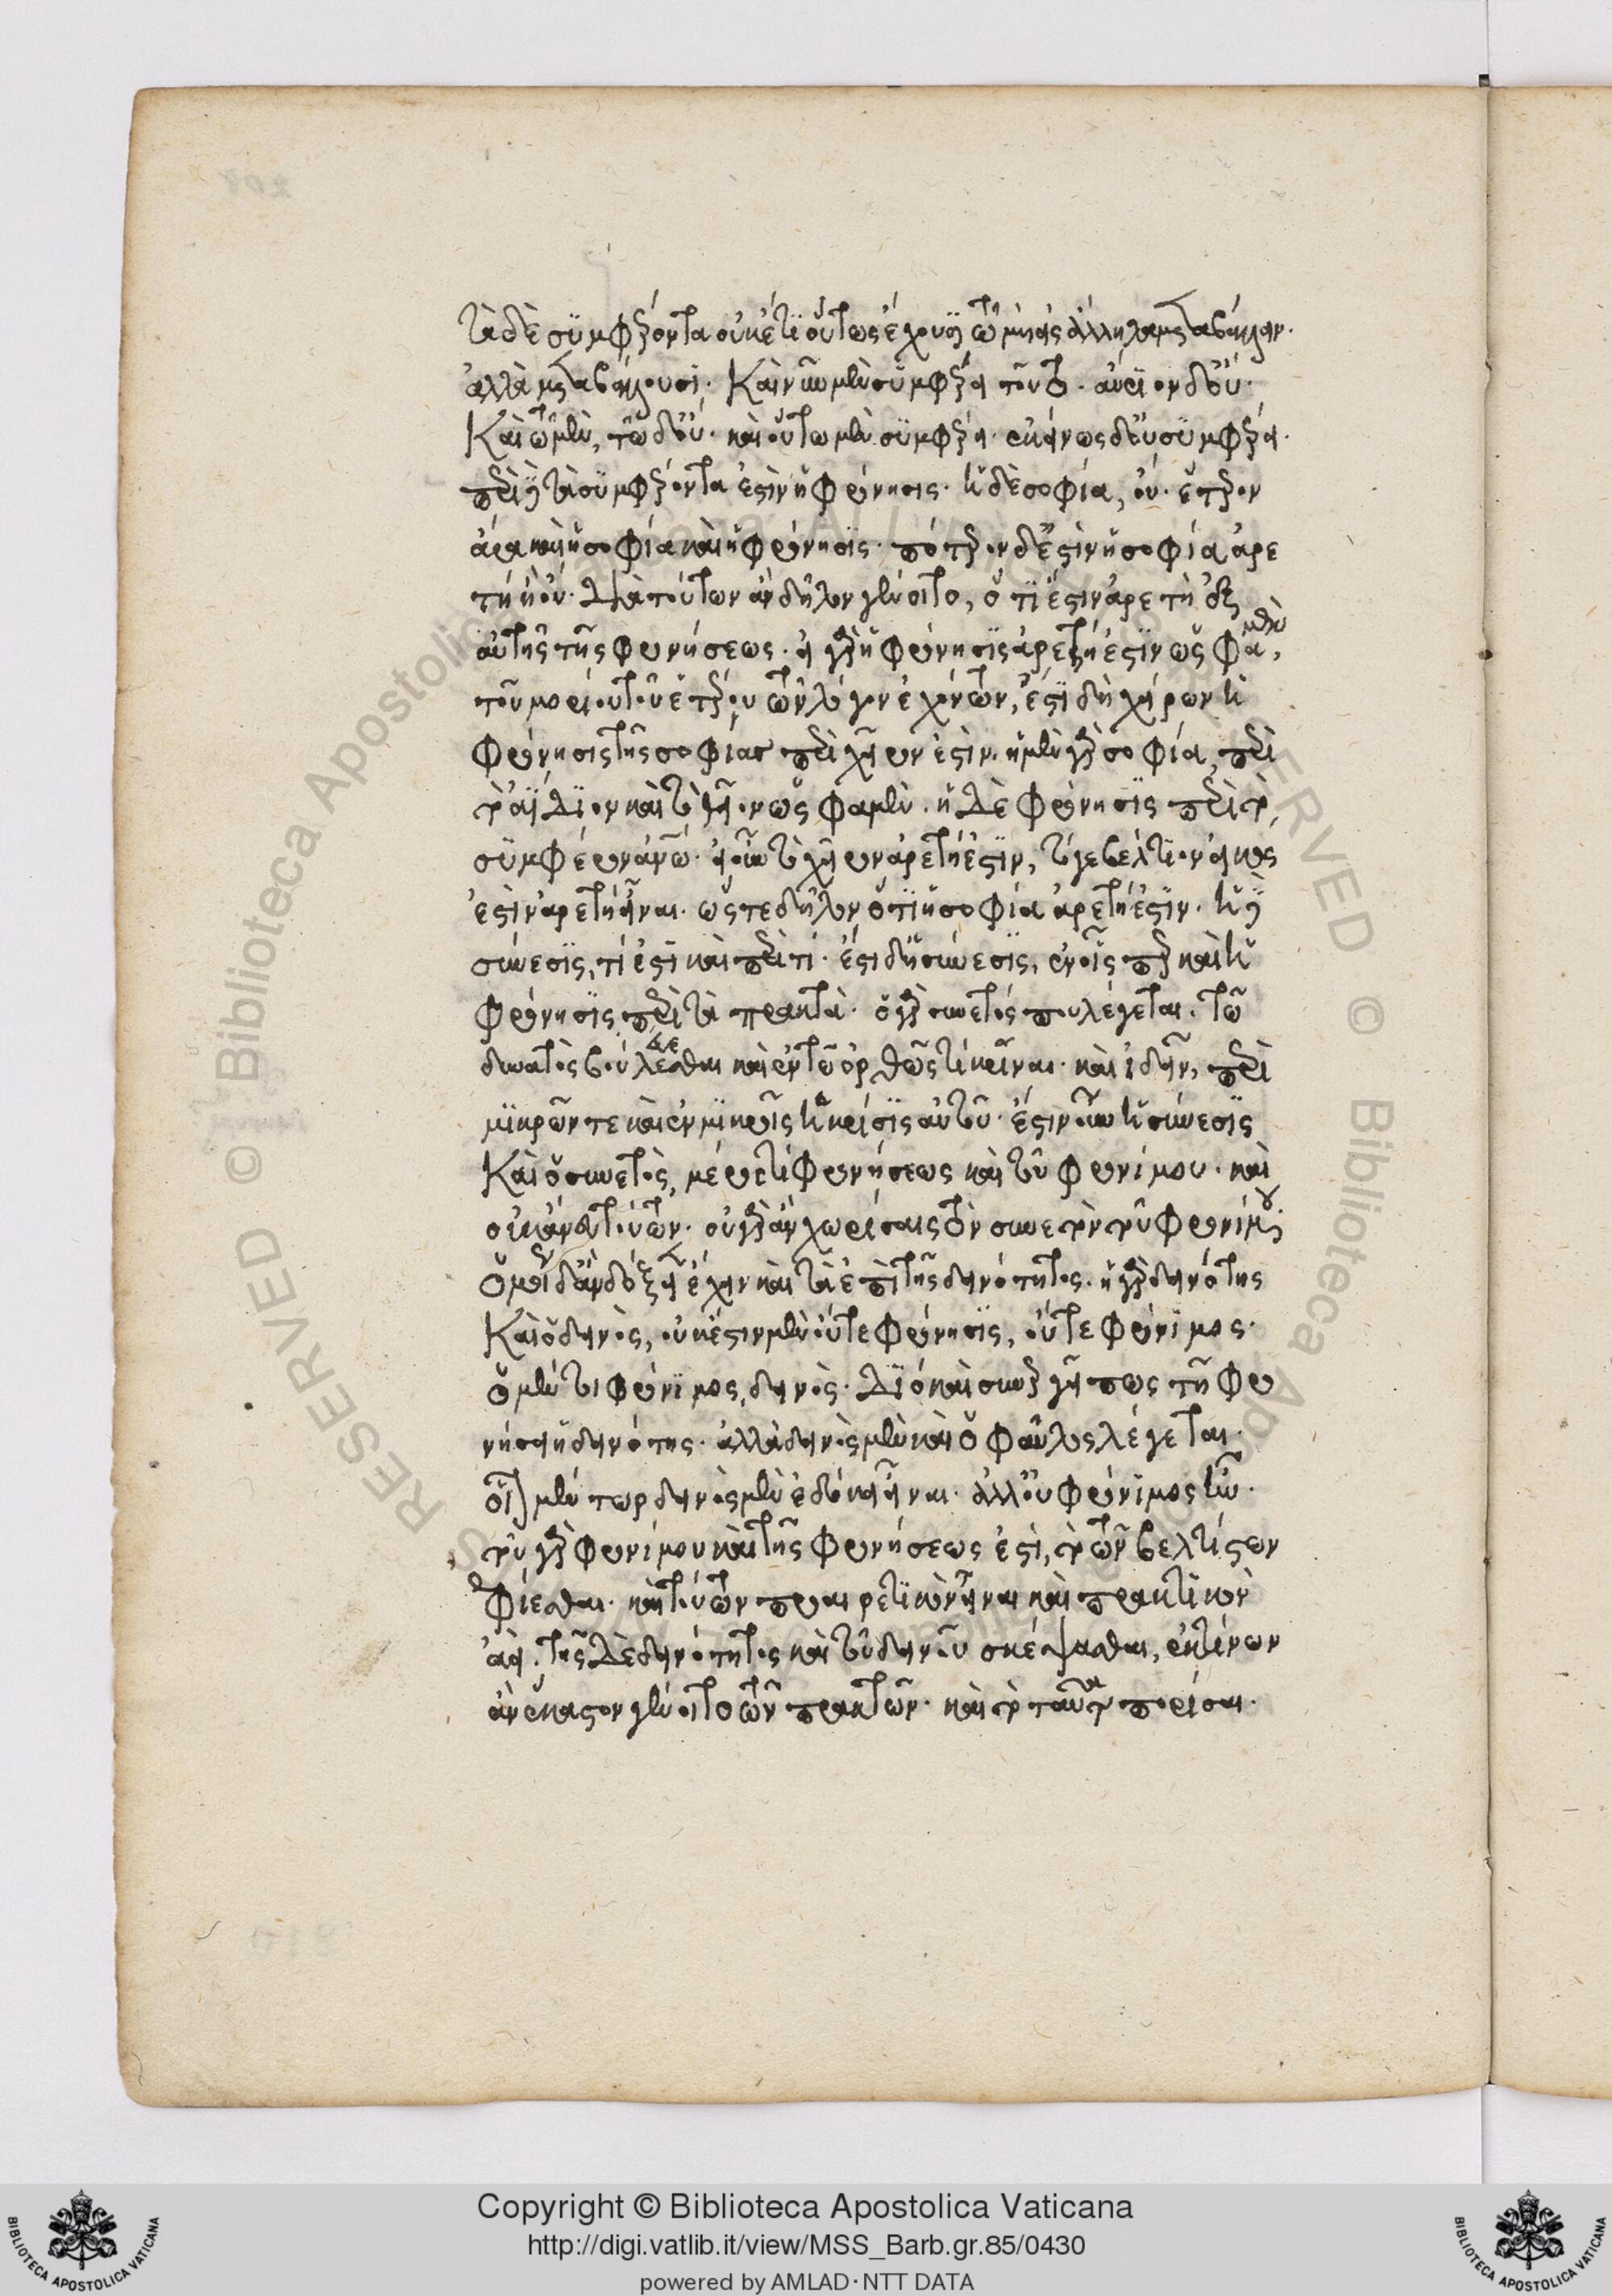 τὰ δὲ συμφέροντα οὐκέτι οὕτως ἔχουσι τῶ μὴ εἰς ἄλληλα μεταβάλλειν.
ἀλλὰ μεταβάλλουσι. Καὶ νῦν μὲν συμφέρει τοῦτο. αὔριον δ' οὔ.
Καὶ τῶ μὲν, τῶ δ' οὔ. καὶ οὕτω μὲν συμφέρει. ἐκείνως δ' οὐ συμφέρει.
περὶ δὲ τὰ συμφέροντα ἐστὶν ἡ φρόνησις. ἡ δὲ σοφία, οὔ. ἕτερον
ἄρα καὶ ἡ σοφία καὶ ἡ φρόνησις. πότερον δ' ἐστὶν ἡ σοφία ἀρε
τὴ ἢ οὔ. Διὰ τούτων ἂν δῆλον γένοιτο, ὅτι ἐστὶν ἀρετὴ ἐξ
αὐτῆς τῆς φρονήσεως. εἰ γὰρ ἡ φρόνησις ἀρετή ἐστιν ὥς φαμεν,
τοῦ μορίου τοῦ ἑτέρου τῶν λόγον ἐχόντων, ἔστι δὴ χείρων ἡ
φρόνησις τῆς σοφίας περὶ χεῖρον ἐστὶν. ἡ μὲν γὰρ σοφία, περὶ
τὸ ἀΐδιον καὶ τὸ θεῖον ὥς φαμὲν. ἡ Δὲ φρόνησις περὶ τὸ
συμφέρον ἀνθρώπω. εἰ οὖν τὸ χεῖρον ἀρετή ἐστιν, τό γε βέλτιον εἰκός
ἐστὶν ἀρετὴ εἶναι. ὥστε δῆλον ὅτι ἡ σοφία ἀρετή ἐστιν. ἡ δὲ
σύνεσις, τί ἐστι καὶ περὶ τί. ἔστι δὴ σύνεσις, ἐν οἷς περ καὶ ἡ
φρόνησις περὶ τὰ πρακτὰ. ὁ γὰρ συνετός που λέγεται. τῶ
δυνατὸς βουλεύεσθαι καὶ ἐν τῶ ὀρθῶς τι κρῖναι. καὶ ἰδεῖν, περὶ
μικρῶν τε καὶ ἐν μικροῖς ἡ κρίσις αὐτοῦ. ἔστιν οὖν ἡ σύνεσις
Καὶ ὁ συνετὸς, μέρος τι φρονήσεως καὶ τοῦ φρονίμου. καὶ
οὐκ ἄνευ τούτων. οὐ γὰρ ἂν χωρίσαις τὸν συνετὸν τοῦ φρονίμου.
Ὁμοίως δ' ἂν δόξειεν ἔχειν καὶ τὰ ἐπὶ τῆς δεινότητος. ἡ γὰρ δεινότης
Καὶ ὁ δεινὸς, οὐκ ἔστιν μὲν οὔτε φρόνησις, οὔτε φρόνιμος.
ὁ μέντοι φρόνιμος, δεινὸς. Διὸ καὶ συνεργεῖ πως τῆ φρο
νήσει ἡ δεινότης. ἀλλὰ δεινὸς μὲν καὶ ὁ φαῦλος λέγεται.
οἷον μέντωρ δεινὸς μὲν ἐδόκει εἶναι. ἀλλ' οὐ φρόνιμος ἦν.
τοῦ γὰρ φρονίμου καὶ τῆς φρονήσεως ἐστὶ, τὸ τῶν βελτίστων
ἐφίεσθαι. καὶ τούτων προαιρετικὸν εἶναι καὶ πρακτικὸν
ἀεί. τῆς Δὲ δεινότητος καὶ τοῦ δεινοῦ σκέψασθαι, ἐκ τίνων
ἂν ἕκαστον γένοιτο τῶν πρακτῶν. καὶ τὸ ταῦτα πορίσαι.
Copyright © Biblioteca Apostolica Vaticana
http://digi.vatlib.it/view/MSS_Barb.gr.85/0430
powered by AMLAD·NTT DATA